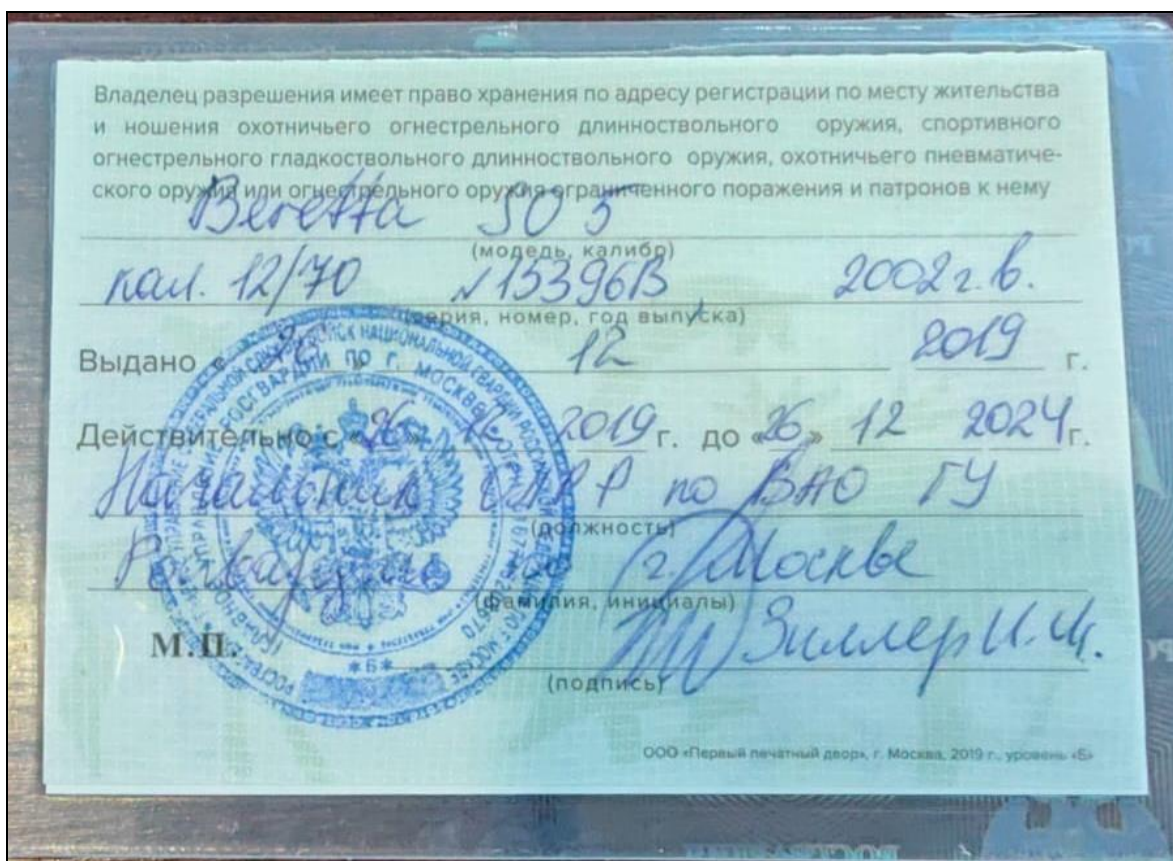 Владелец разрешения имеет право хранения по адресу регистрации по месту жительства
и ношения охотничьего огнестрельного длинноствольного оружия, спортивного
огнестрельного гладкоствольного длинноствольного оружия, охотничьего пневматиче-
ского оружия или огнестрельного оружия ограниченного поражения и патронов к нему
Beretta SO 5
(модель, калибр)
кал. 12/70 №15396B, 2002 г.в.
(серия, номер, год выпуска)
Выдано « 12 2019 г.
Действительно с «26» 12 2019 г. до «26» 12 2024 г.
Начальник ОЛРР по ВАО ГУ
(должность)
Росгвардии по г. Москве
(фамилия, инициалы)
М.П. Зиллер И.И.
(подпись)
РОСГВАРДИИ ПО Г. МОСКВЕ
*Б*
ООО «Первый печатный двор», г. Москва, 2019 г., уровень «Б»